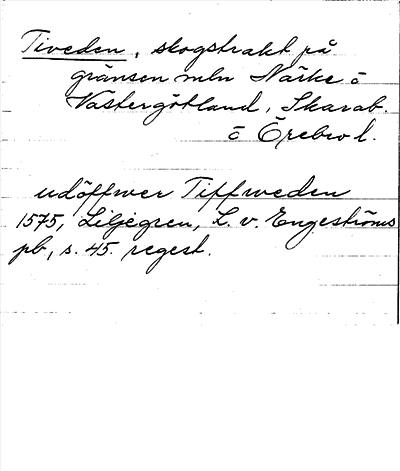 Tiveden, skogstrakt på
gränsen mln Närke o
Västergötland, Skarab.
o Örebro l.
udöffwer Tiffweden
1575, Liljegren, L. v. Engeströms
pb, s. 45. regest.